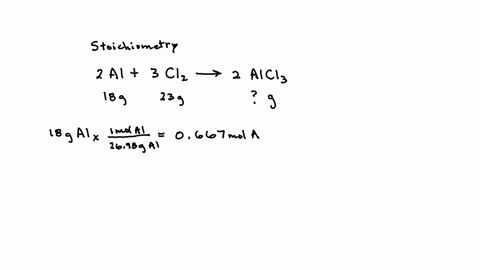 Stoichiometry
2 Al + 3 Cl₂ ⟶ 2 AlCl₃
18g 23g ? g
18 g Al x 1 mol Al / 26.98 g Al = 0.667 mol A